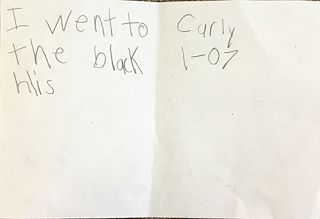 I went to
the black
hlis
Carly
1-07